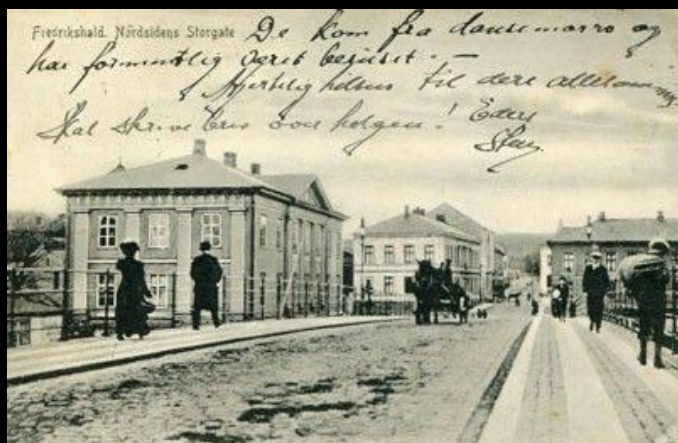 Fredrikshald. Nordsidens Storgate
De kom fra dansemorro og
har formentlig veret beruset. —
Hjertelig hilsen til dere allesammen
Skal skrive brev over helgen! Eders